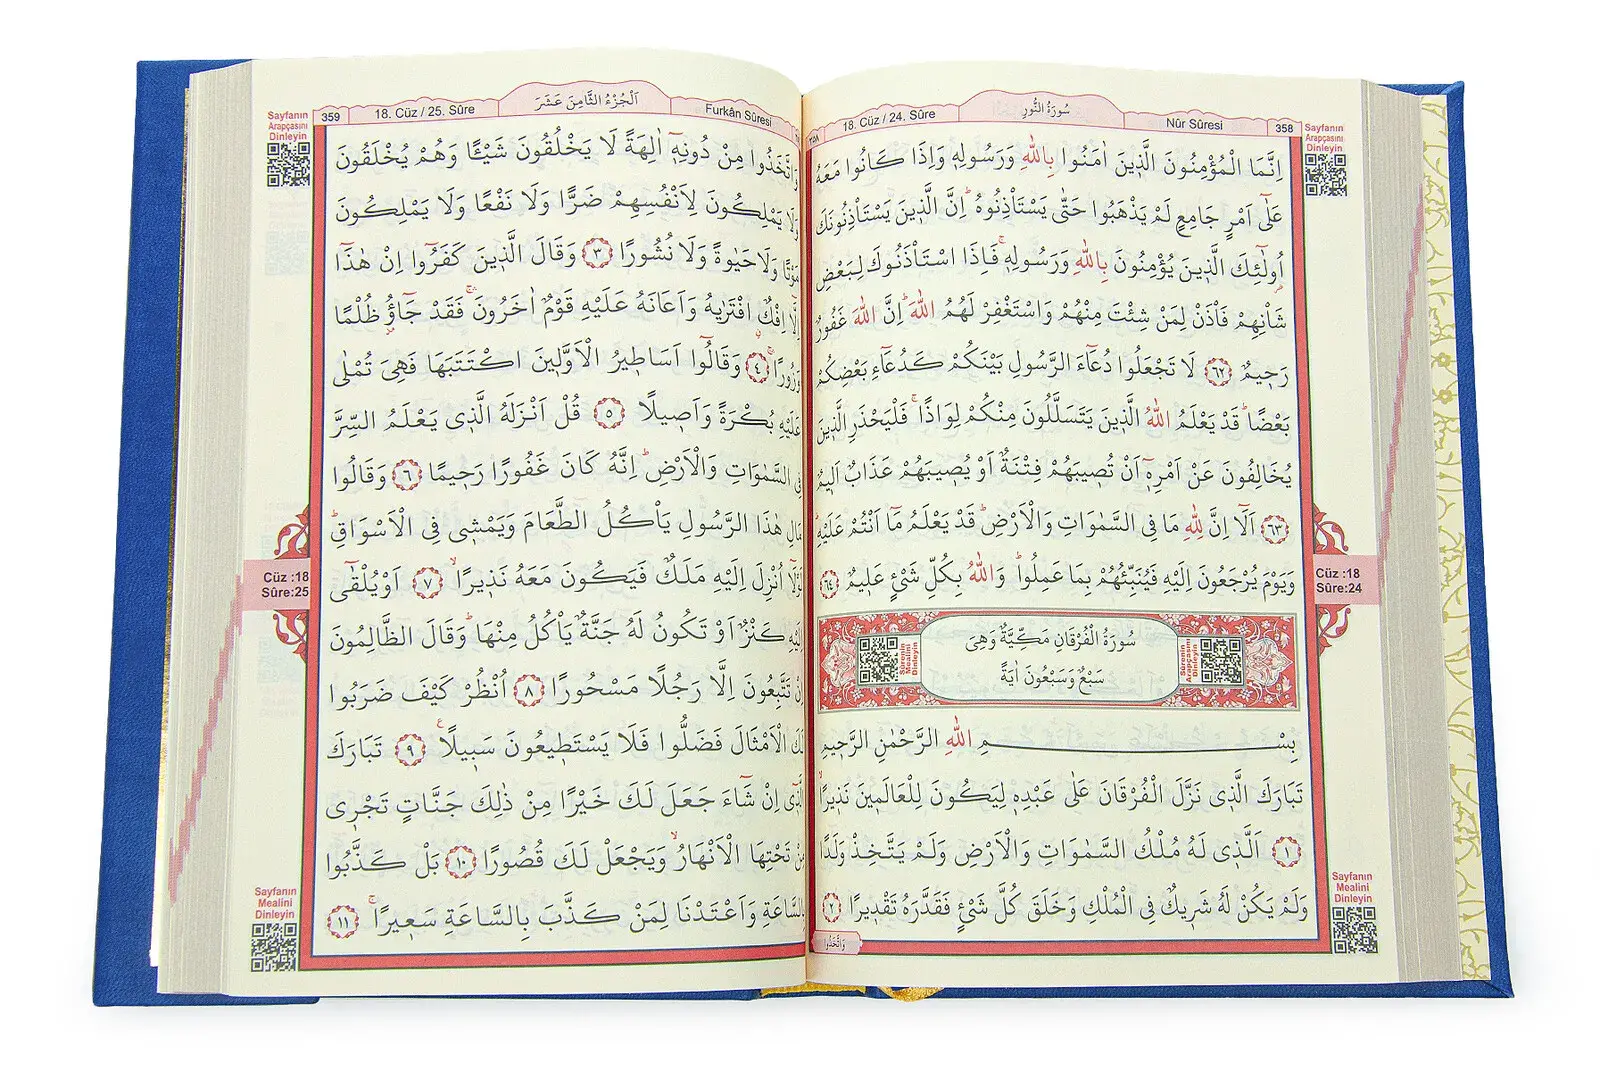 358
Nûr Sûresi
سُورَةُ النُّورِ
18. Cüz / 24. Sûre
Sayfanın
Arapçasını
Dinleyin
اِنَّمَا الْمُؤْمِنُونَ الَّذ۪ينَ اٰمَنُوا بِاللّٰهِ وَرَسُولِه۪ وَاِذَا كَانُوا مَعَهُ
عَلٰٓى اَمْرٍ جَامِعٍ لَمْ يَذْهَبُوا حَتّٰى يَسْتَأْذِنُوهُۜ اِنَّ الَّذ۪ينَ يَسْتَأْذِنُونَكَ
اُو۬لٰٓئِكَ الَّذ۪ينَ يُؤْمِنُونَ بِاللّٰهِ وَرَسُولِه۪ۚ فَاِذَا اسْتَأْذَنُوكَ لِبَعْضِ
شَأْنِهِمْ فَأْذَنْ لِمَنْ شِئْتَ مِنْهُمْ وَاسْتَغْفِرْ لَهُمُ اللّٰهَۜ اِنَّ اللّٰهَ غَفُورٌ
رَح۪يمٌ ﴿٦٢﴾ لَا تَجْعَلُوا دُعَٓاءَ الرَّسُولِ بَيْنَكُمْ كَدُعَٓاءِ بَعْضِكُمْ
بَعْضًاۜ قَدْ يَعْلَمُ اللّٰهُ الَّذ۪ينَ يَتَسَلَّلُونَ مِنْكُمْ لِوَاذًاۚ فَلْيَحْذَرِ الَّذ۪ينَ
يُخَالِفُونَ عَنْ اَمْرِه۪ٓ اَنْ تُص۪يبَهُمْ فِتْنَةٌ اَوْ يُص۪يبَهُمْ عَذَابٌ اَل۪يمٌ
﴿٦٣﴾ اَلَٓا اِنَّ لِلّٰهِ مَا فِي السَّمٰوَاتِ وَالْاَرْضِۜ قَدْ يَعْلَمُ مَٓا اَنْتُمْ عَلَيْهِۜ
وَيَوْمَ يُرْجَعُونَ اِلَيْهِ فَيُنَبِّئُهُمْ بِمَا عَمِلُواۜ وَاللّٰهُ بِكُلِّ شَيْءٍ عَل۪يمٌ ﴿٦٤﴾
Cüz :18
Sûre:24
سُورَةُ الْفُرْقَانِ مَكِّيَّةٌ وَهِيَ
سَبْعٌ وَسَبْعُونَ اٰيَةً
Sûrenin
Arapçasını
Dinleyin
Sûrenin
Mealini
Dinleyin
بِسْمِ اللّٰهِ الرَّحْمٰنِ الرَّح۪يمِ
تَبَارَكَ الَّذ۪ي نَزَّلَ الْفُرْقَانَ عَلٰى عَبْدِه۪ لِيَكُونَ لِلْعَالَم۪ينَ نَذ۪يرًاۙ
﴿١﴾ اَلَّذ۪ي لَهُ مُلْكُ السَّمٰوَاتِ وَالْاَرْضِ وَلَمْ يَتَّخِذْ وَلَدًا
وَلَمْ يَكُنْ لَهُ شَر۪يكٌ فِي الْمُلْكِ وَخَلَقَ كُلَّ شَيْءٍ فَقَدَّرَهُ تَقْد۪يرًا ﴿٢﴾
وَاتَّخَذُوا
Sayfanın
Mealini
Dinleyin
Furkân Sûresi
اَلْجُزْءُ الثَّامِنَ عَشَرَ
18. Cüz / 25. Sûre
359
Sayfanın
Arapçasını
Dinleyin
وَاتَّخَذُوا مِنْ دُونِه۪ٓ اٰلِهَةً لَا يَخْلُقُونَ شَيْـًٔا وَهُمْ يُخْلَقُونَ
وَلَا يَمْلِكُونَ لِاَنْفُسِهِمْ ضَرًّا وَلَا نَفْعًا وَلَا يَمْلِكُونَ
مَوْتًا وَلَا حَيٰوةً وَلَا نُشُورًا ﴿٣﴾ وَقَالَ الَّذ۪ينَ كَفَرُٓوا اِنْ هٰذَٓا
اِلَّٓا اِفْكٌۨ افْتَرٰيهُ وَاَعَانَهُ عَلَيْهِ قَوْمٌ اٰخَرُونَۚۛ فَقَدْ جَٓاؤُ۫ ظُلْمًا
وَزُورًاۚۛ ﴿٤﴾ وَقَالُٓوا اَسَاط۪يرُ الْاَوَّل۪ينَ اكْتَتَبَهَا فَهِيَ تُمْلٰى
عَلَيْهِ بُكْرَةً وَاَص۪يلًا ﴿٥﴾ قُلْ اَنْزَلَهُ الَّذ۪ي يَعْلَمُ السِّرَّ
فِي السَّمٰوَاتِ وَالْاَرْضِۜ اِنَّهُ كَانَ غَفُورًا رَح۪يمًا ﴿٦﴾ وَقَالُوا
مَالِ هٰذَا الرَّسُولِ يَأْكُلُ الطَّعَامَ وَيَمْش۪ي فِي الْاَسْوَاقِۜ
لَوْلَٓا اُنْزِلَ اِلَيْهِ مَلَكٌ فَيَكُونَ مَعَهُ نَذ۪يرًاۙ ﴿٧﴾ اَوْ يُلْقٰٓى
اِلَيْهِ كَنْزٌ اَوْ تَكُونُ لَهُ جَنَّةٌ يَأْكُلُ مِنْهَاۜ وَقَالَ الظَّالِمُونَ
اِنْ تَتَّبِعُونَ اِلَّا رَجُلًا مَسْحُورًا ﴿٨﴾ اُنْظُرْ كَيْفَ ضَرَبُوا
لَكَ الْاَمْثَالَ فَضَلُّوا فَلَا يَسْتَط۪يعُونَ سَب۪يلًا۟ ﴿٩﴾ تَبَارَكَ
الَّذ۪ٓي اِنْ شَٓاءَ جَعَلَ لَكَ خَيْرًا مِنْ ذٰلِكَ جَنَّاتٍ تَجْر۪ي
مِنْ تَحْتِهَا الْاَنْهَارُۙ وَيَجْعَلْ لَكَ قُصُورًا ﴿١٠﴾ بَلْ كَذَّبُوا
بِالسَّاعَةِ وَاَعْتَدْنَا لِمَنْ كَذَّبَ بِالسَّاعَةِ سَع۪يرًاۚ ﴿١١﴾
Cüz :18
Sûre:25
Sayfanın
Mealini
Dinleyin